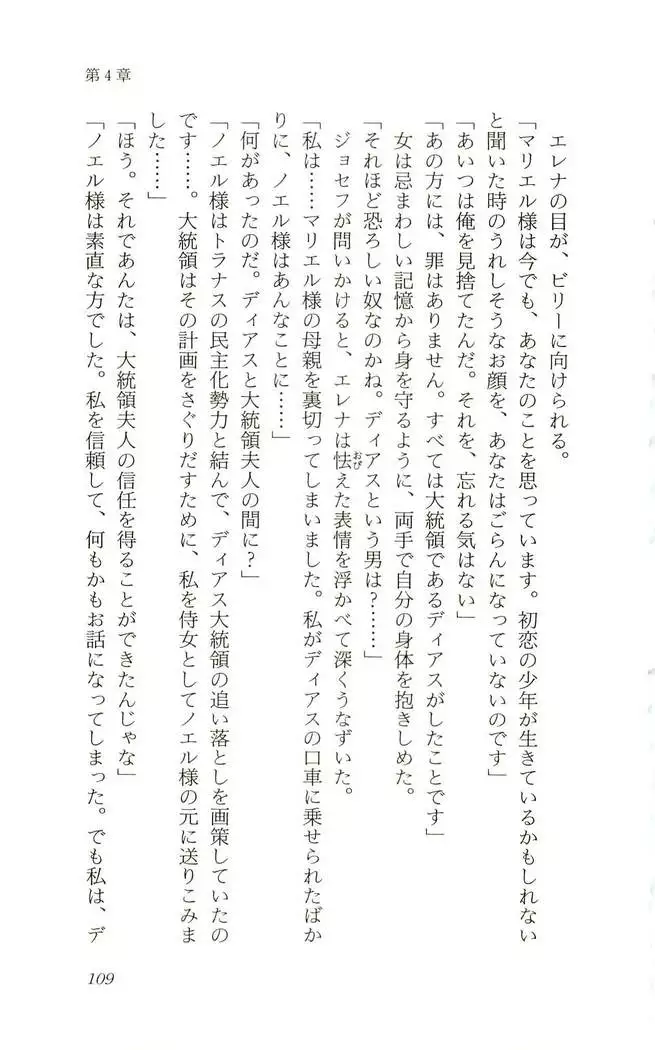 第4章
エレナの目が、ビリーに向けられる。
「マリエル様は今でも、あなたのことを思っています。初恋の少年が生きているかもしれない
と聞いた時のうれしそうなお顔を、あなたはごらんになっていないのです」
「あいつは俺を見捨てたんだ。それを、忘れる気はない」
「あの方には、罪はありません。すべては大統領であるディアスがしたことです」
女は忌まわしい記憶から身を守るように、両手で自分の身体を抱きしめた。
「それほど恐ろしい奴なのかね。ディアスという男は?……」
ジョセフが問いかけると、エレナは怯えた表情を浮かべて深くうなずいた。
おび
「私は……マリエル様の母親を裏切ってしまいました。私がディアスの口車に乗せられたばか
りに、ノエル様はあんなことに……」
「何があったのだ。ディアスと大統領夫人の間に?」
「ノエル様はトラナスの民主化勢力と結んで、ディアス大統領の追い落としを画策していたの
です……。大統領はその計画をさぐりだすために、私を侍女としてノエル様の元に送りこみま
した……」
「ほう。それであんたは、大統領夫人の信任を得ることができたんじゃな」
「ノエル様は素直な方でした。私を信頼して、何もかもお話になってしまった。でも私は、デ
109